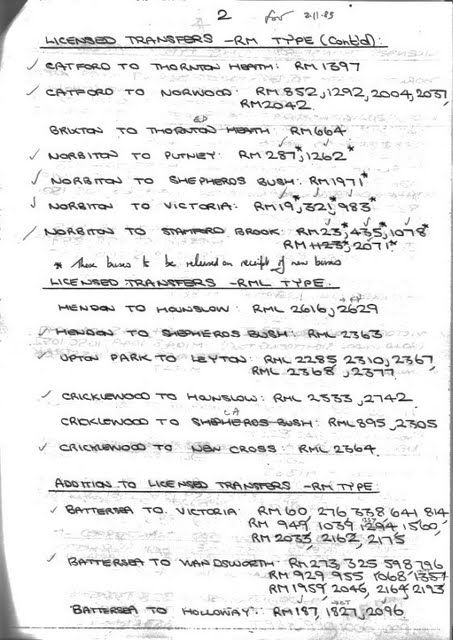 2 for 2.11.85
LICENSED TRANSFERS - RM TYPE (Contd):
✓ CATFORD TO THORNTON HEATH: RM 1397
✓ CATFORD TO NORWOOD: RM 852, 1292, 2004, 2037,
RM 2042
BRIXTON TO THORNTON HEATH RM 664
✓ NORBITON TO PUTNEY: RM 287*, 1262*
✓ NORBITON TO SHEPHERDS BUSH: RM 1971*
✓ NORBITON TO VICTORIA: RM 19*, 321*, 983*
✓ NORBITON TO STAMFORD BROOK: RM 23*, 435*, 1078*
RM 1123*, 2071*
* These buses to be released on receipt of new buses
LICENSED TRANSFERS - RML TYPE.
HENDON TO HOUNSLOW: RML 2616, 2629
✓ HENDON TO SHEPHERDS BUSH: RML 2363
✓ UPTON PARK TO LEYTON: RML 2285 2310, 2367,
RML 2368, 2377
✓ CRICKLEWOOD TO HOUNSLOW: RML 2533, 2742
CA
CRICKLEWOOD TO SHEPHERDS BUSH: RML 895, 2305
✓ CRICKLEWOOD TO NEW CROSS: RML 2364
ADDITION TO LICENSED TRANSFERS - RM TYPE:
✓ BATTERSEA TO VICTORIA: RM 60, 276 338 641 814
RM 949 1039 1294 1560,
RM 2033, 2162, 2175
✓ BATTERSEA TO WANDSWORTH: RM 273 325 598 796
RM 929 955 1068 1357
RM 1959 2046, 2164 2193
BATTERSEA TO HOLLOWAY: RM 187, 1827, 2096.